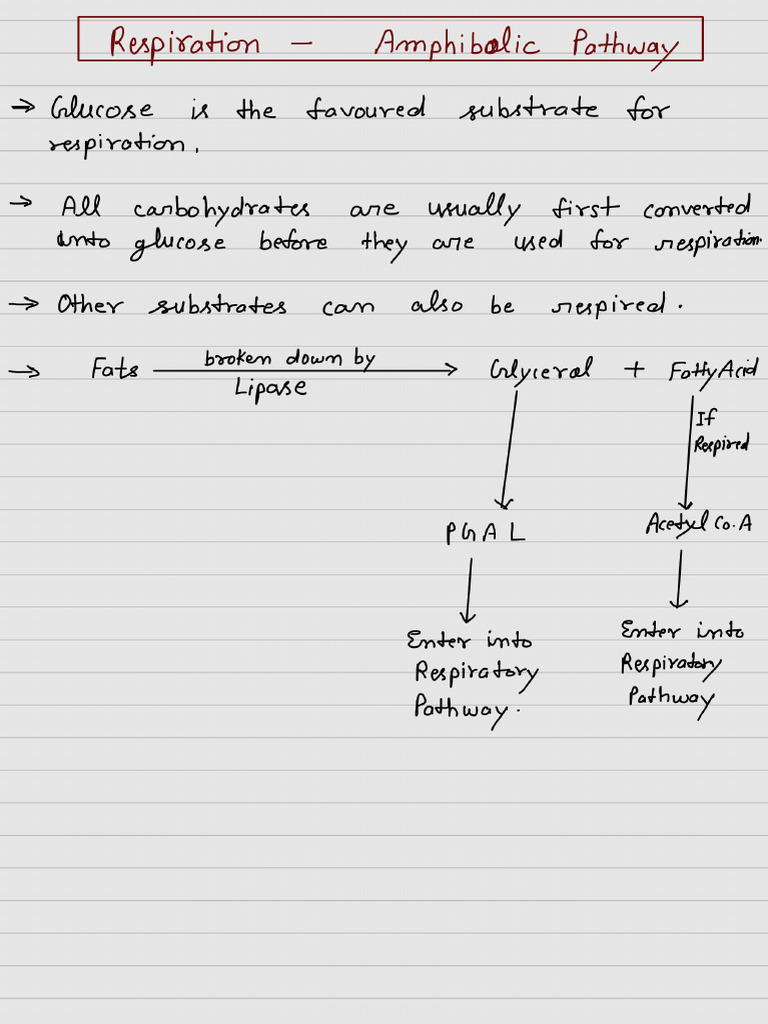 Respiration - Amphibolic Pathway
→ Glucose is the favoured substrate for
respiration.
→ All carbohydrates are usually first converted
into glucose before they are used for respiration.
→ Other substrates can also be respired.
→ Fats broken down by Lipase → Glyceral + Fatty Acid
If
Respired
PGAL
Acetyl Co.A
Enter into
Respiratory
Pathway.
Enter into
Respiratory
Pathway